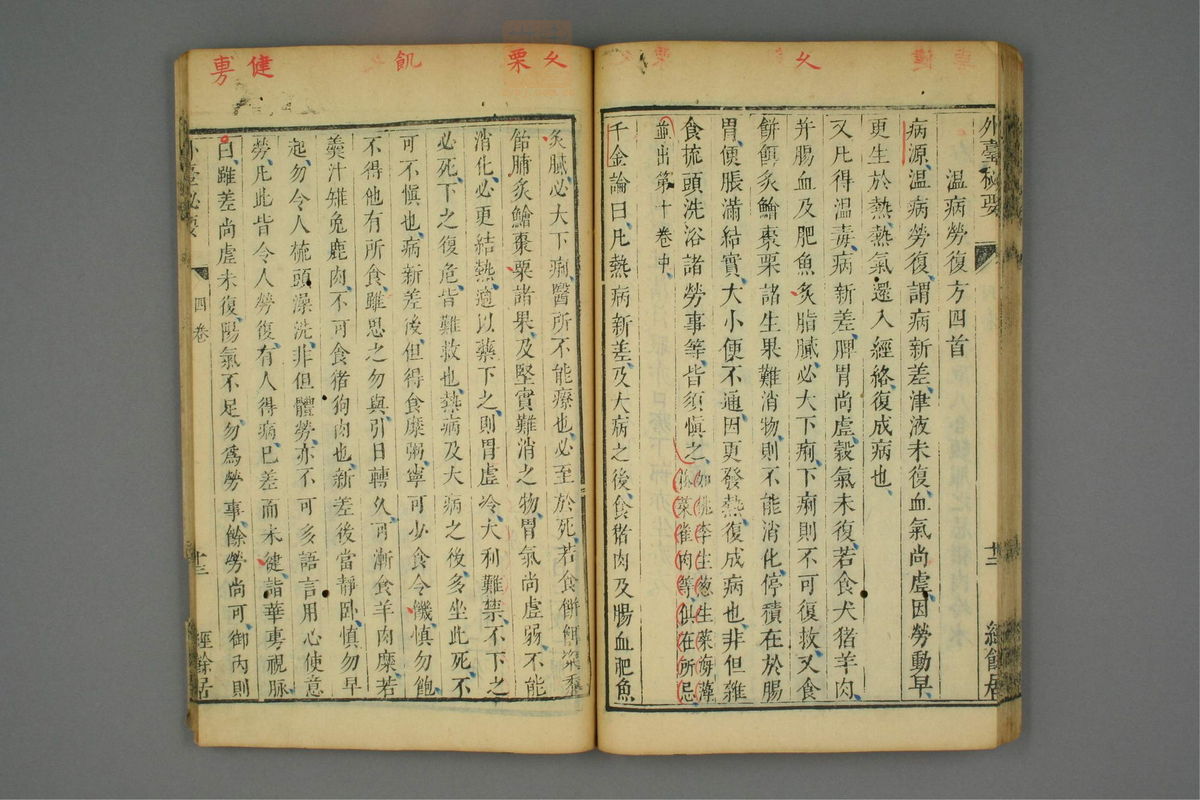 外臺秘要
溫病勞復方四首
病源溫病勞復謂病新差津液未復血氣尚虛因勞動早
更生於熱熱氣還入經絡復成病也
又凡得溫毒病新差脾胃尚虛穀氣未復若食犬猪羊肉
并腸血及肥魚炙脂膩必大下痢下痢則不可復救又食
餅餌炙鱠棗栗諸生果難消物則不能消化停積在於腸
胃便脹滿結實大小便不通因更發熱復成病也非但雜
食梳頭洗浴諸勞事等皆須慎之
如桃李生葱生菜海藻
菘菜雀肉等俱在所忌
並出第十卷中
千金論曰凡熱病新差及大病之後食猪肉及腸血肥魚
十三
經餘居
夂
夂
栗
飢
健
旉
炙膩必大下痢醫所不能療也必至於死若食餅餌粢黍
飴脯炙鱠棗栗諸果及堅實難消之物胃氣尚虛弱不能
消化必更結熱適以藥下之則胃虛冷大利難禁不下之
必死下之復危皆難救也熱病及大病之後多坐此死不
可不慎也病新差後但得食糜粥寧可少食令饑慎勿飽
不得他有所食雖思之勿與引日轉久可漸食羊肉糜若
羹汁雉兔鹿肉不可食猪狗肉也新差後當靜卧慎勿早
起勿令人梳頭澡洗非但體勞亦不可多語言用心使意
勞凡此皆令人勞復有人得病已差而未健詣華旉視脉
曰雖差尚虛未復陽氣不足勿爲勞事餘勞尚可御內則
外臺秘要
四卷
十三
經餘居